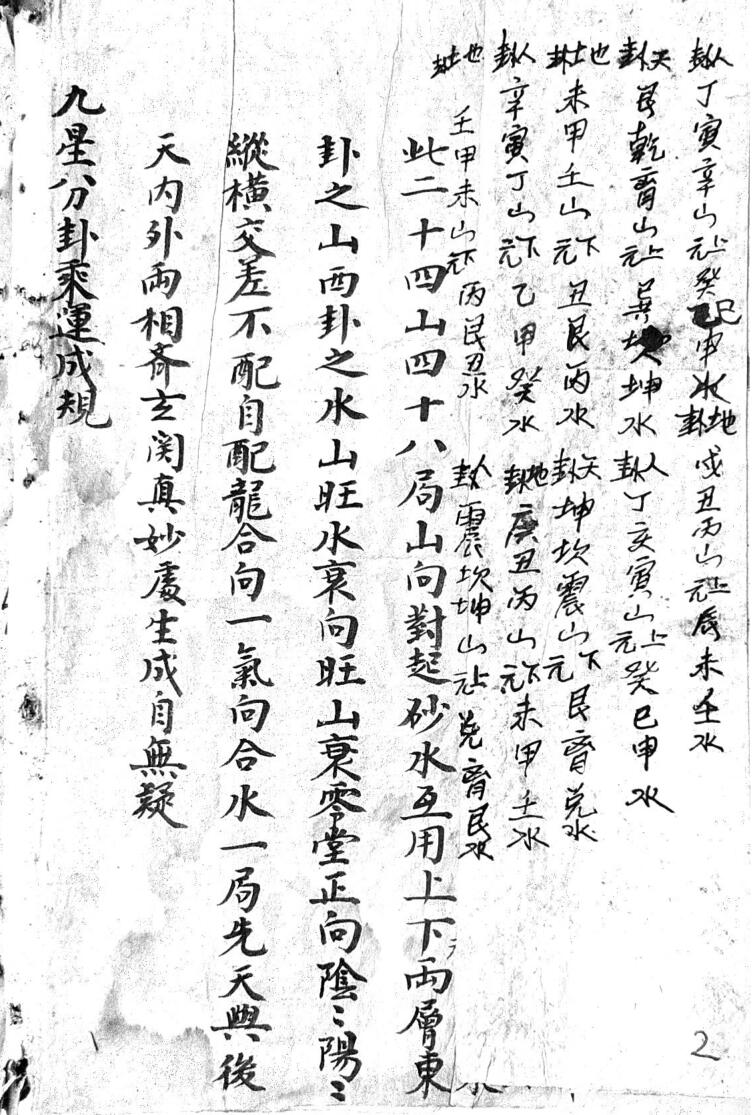 人卦丁寅辛山上元癸巳申水地卦戌丑丙山上元辰未壬水
天卦艮乾山上元巽坎坤水人卦丁亥寅山上元癸巳申水
地卦未甲壬山下元丑艮丙水天卦坤坎震山下元艮兌水
人卦辛寅丁山下元乙甲癸水地卦庚丑丙山下元未甲壬水
地卦壬甲未山下元丙艮丑水人卦震坎坤山上元兌艮水
此二十四山四十八局山向對起砂水互用上下兩層東
卦之山西卦之水山旺水衰向旺山衰零堂正向陰〻陽〻
縱橫交差不配自配龍合向一氣向合水一局先天與後
天内外兩相齊玄関真妙處生成自無疑
九星分卦乘運成規
2